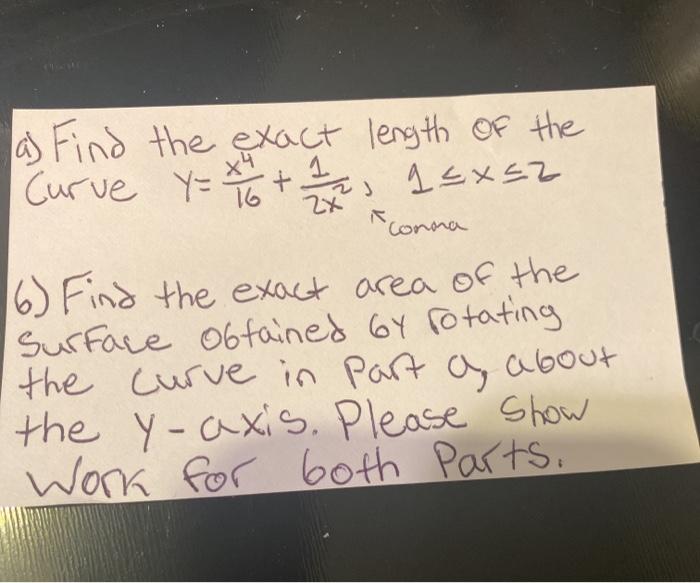 a) Find the exact length of the
Curve Y= x⁴/16 + 1/2x², 1≤x≤2
↖comma
b) Find the exact area of the
surface obtained by rotating
the curve in Part a, about
the y-axis. Please Show
Work for both Parts.